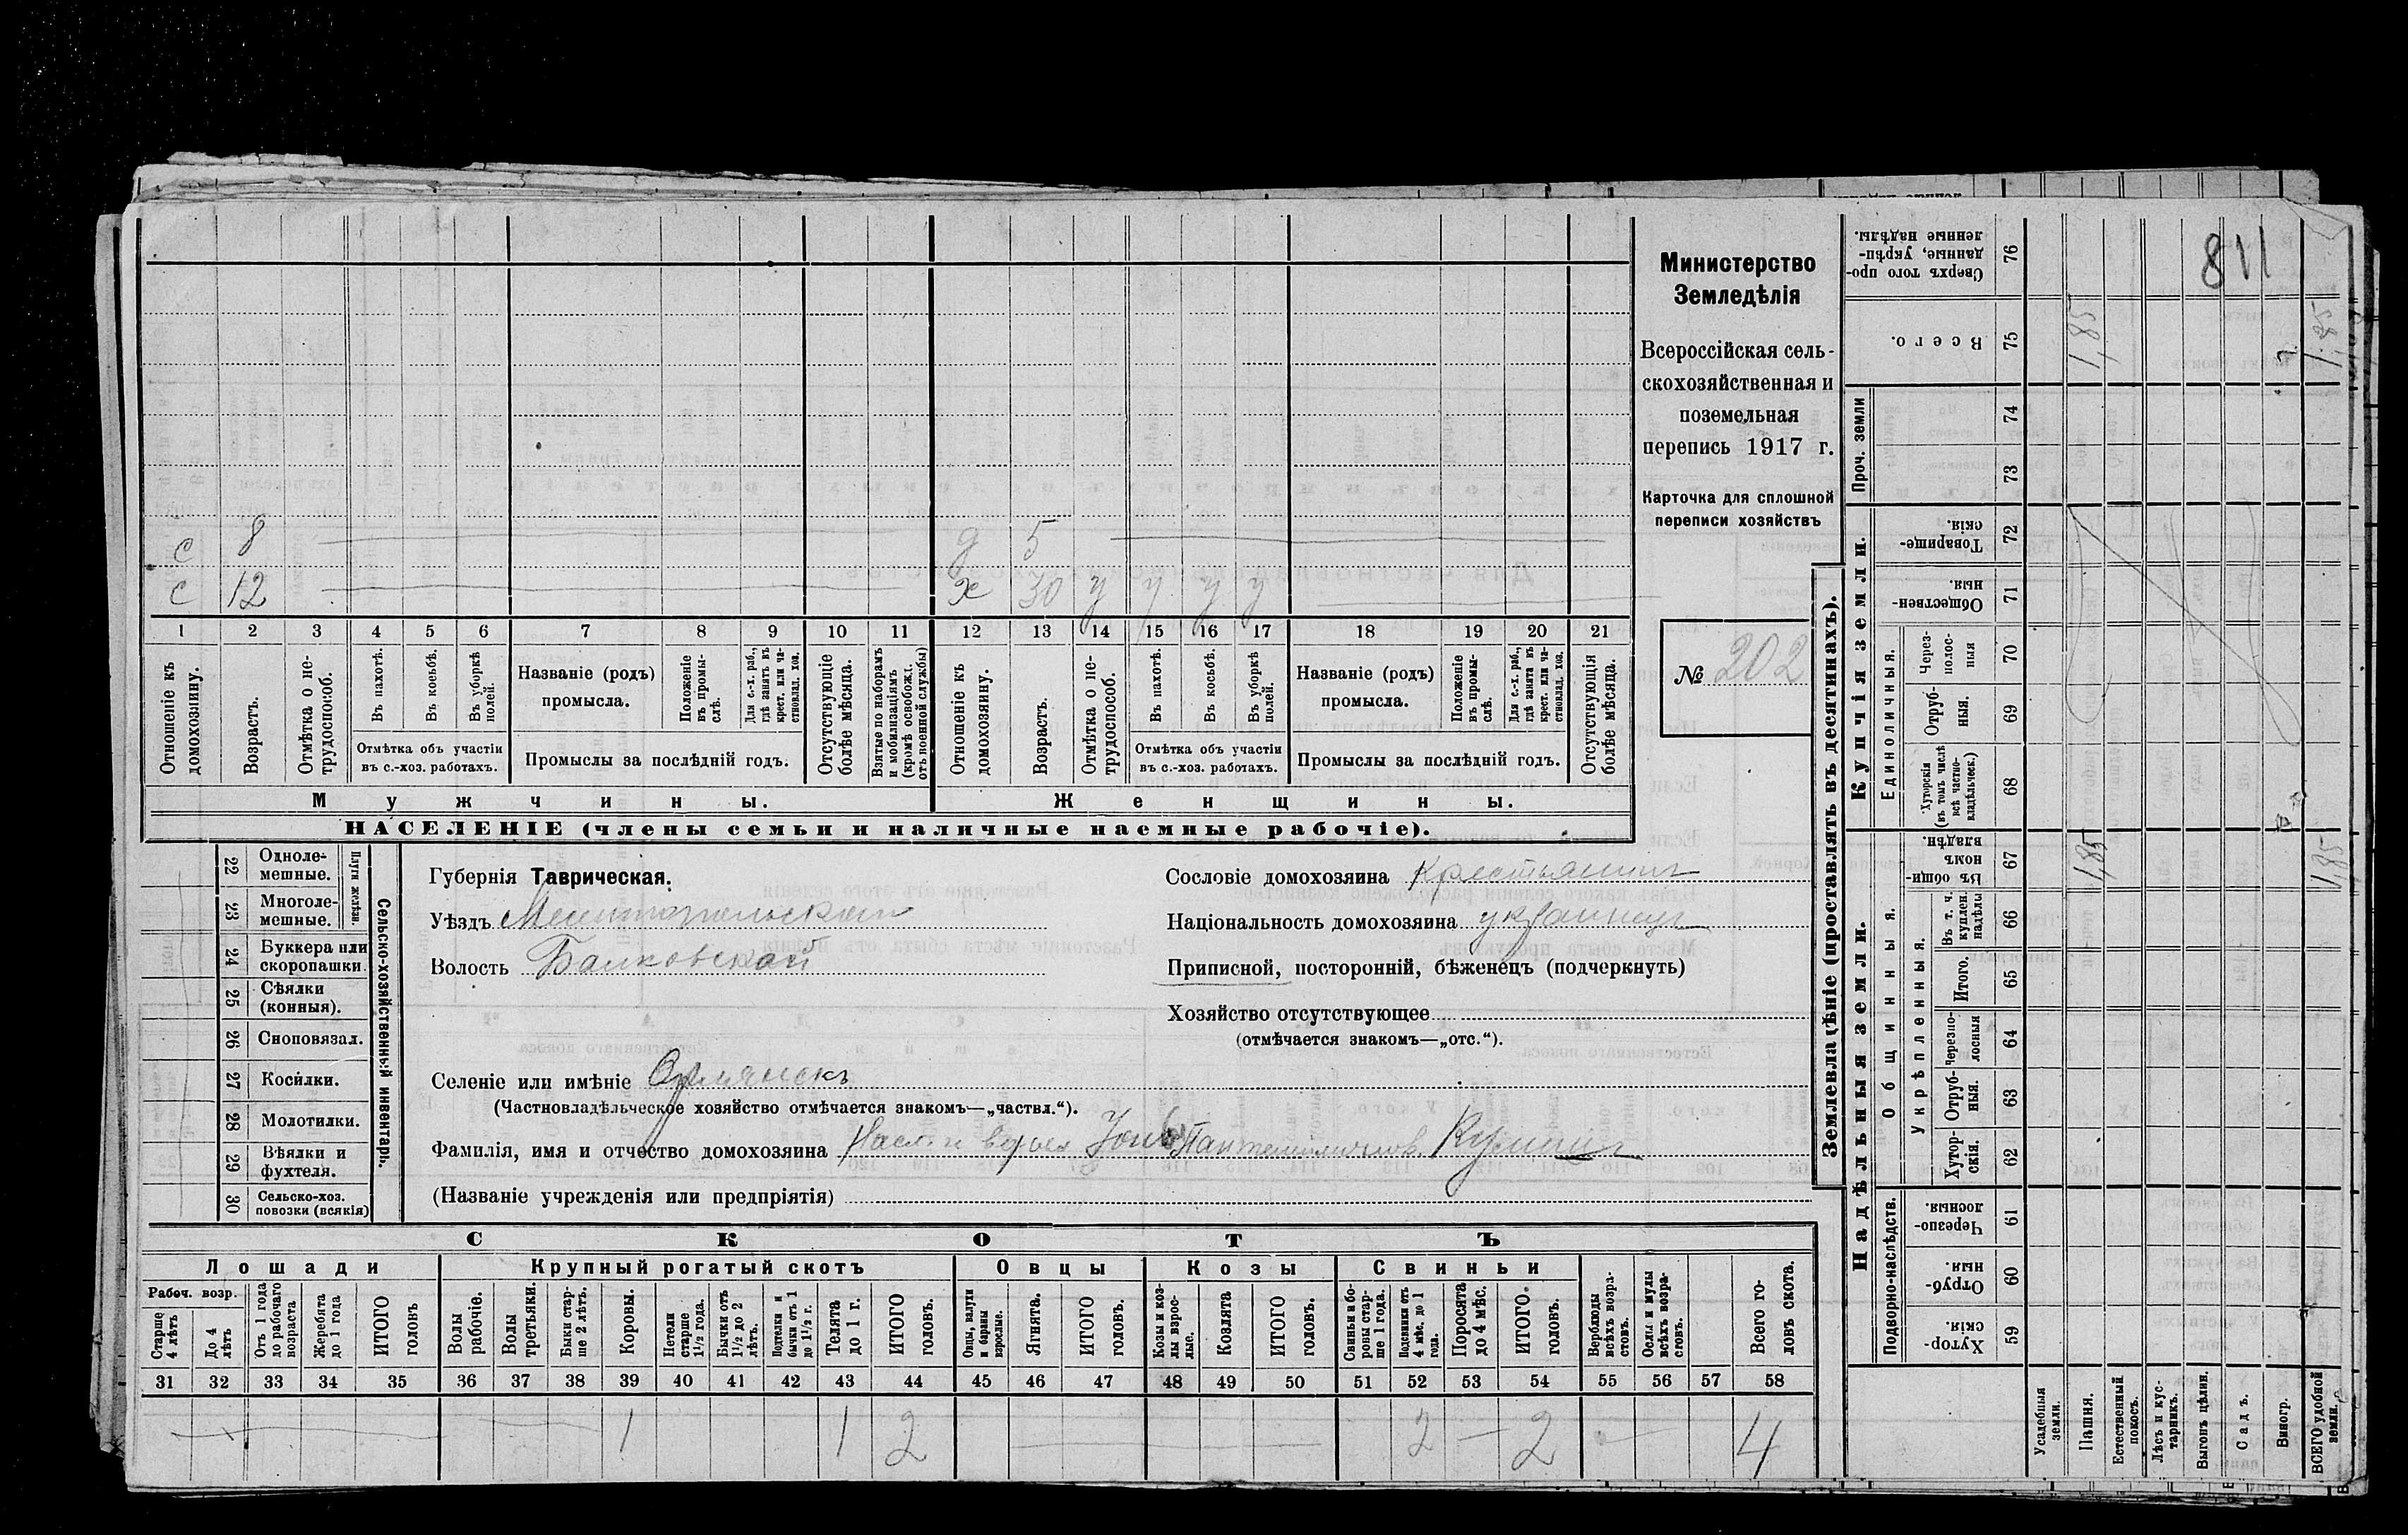 с 8 — д 5 —
с 12 — х 30 у у у у —
1 2 3 4 5 6 7 8 9 10 11 12 13 14 15 16 17 18 19 20 21
Отношеніе къ домохозяину.
Возрастъ.
Отмѣтка о не-
трудоспособ.
Въ пахотѣ.
Въ косьбѣ.
Въ уборкѣ
полей.
Отмѣтка объ участіи
въ с.-хоз. работахъ.
Названіе (родъ)
промысла.
Положеніе
въ промы-
слѣ.
Для с.-х. раб.,
гдѣ занятъ въ
крест. или ча-
стновлад. хоз.
Промыслы за послѣдній годъ.
Отсутствующіе
болѣе мѣсяца.
Взятые по наборамъ
и мобилизаціямъ
(кромѣ освобожд.
отъ военной службы)
Отношеніе къ
домохозяину.
Возрастъ.
Отмѣтка о не-
трудоспособ.
Въ пахотѣ.
Въ косьбѣ.
Въ уборкѣ
полей.
Отмѣтка объ участіи
въ с.-хоз. работахъ.
Названіе (родъ)
промысла.
Положеніе
въ промы-
слѣ.
Для с.-х. раб.,
гдѣ занята въ
крест. или ча-
стновлад. хоз.
Промыслы за послѣдній годъ.
Отсутствующія
болѣе мѣсяца.
Мужчины.
Женщины.
НАСЕЛЕНІЕ (члены семьи и наличные наемные рабочіе).
Министерство
Земледѣлія
Всероссійская сель-
скохозяйственная и
поземельная
перепись 1917 г.
Карточка для сплошной
переписи хозяйствъ
№ 202
22 Одноле-
мешные.
23 Многоле-
мешные.
Плуги желѣзн.
24 Буккера или
скоропашки.
25 Сѣялки
(конныя).
26 Сноповязал.
27 Косилки.
28 Молотилки.
29 Вѣялки и
фухтеля.
30 Сельско-хоз.
повозки (всякія)
Сельско-хозяйственный инвентарь.
Губернія Таврическая.
Уѣздъ Мелитопольскій
Волость Балковской
Селеніе или имѣніе
(Частновладѣльческое хозяйство отмѣчается знакомъ—„частвл.“).
Фамилія, имя и отчество домохозяина
(Названіе учрежденія или предпріятія)
Сословіе домохозяина крестьянинъ
Національность домохозяина украинецъ
Приписной, посторонній, бѣженецъ (подчеркнуть)
Хозяйство отсутствующее
(отмѣчается знакомъ—„отс.“).
СКОТЪ
Лошади
Крупный рогатый скотъ
Овцы
Козы
Свиньи
Рабоч. возр.
Старше
4 лѣтъ
До 4
лѣтъ
Отъ 1 года
до рабочаго
возраста
Жеребята
до 1 года
ИТОГО
головъ
Волы
рабочіе.
Волы
третьяки.
Быки стар-
ше 2 лѣтъ.
Коровы.
Нетели
старше
1½ года.
Бычки отъ
1½ до 2
лѣтъ.
Подтелки и
бычки отъ 1
до 1½ г.
Телята
до 1 г.
ИТОГО
головъ.
Овцы, валухи
и бараны
взрослые.
Ягнята.
ИТОГО
головъ.
Козы и коз-
лы взрос-
лые.
Козлята
ИТОГО
головъ.
Свиньи и бо-
ровы стар-
ше 1 года.
Подсвинки отъ
4 мѣс. до 1
года.
Поросята
до 4 мѣс.
ИТОГО.
головъ.
Верблюды
всѣхъ возра-
стовъ.
Ослы и мулы
всѣхъ возра-
стовъ.
Всего го-
ловъ скота.
31 32 33 34 35 36 37 38 39 40 41 42 43 44 45 46 47 48 49 50 51 52 53 54 55 56 57 58
1 1 2 2 — 2 — 4
Землевладѣніе (проставлять въ десятинахъ).
Надѣльныя земли.
Купчія земли.
Проч. земли
Подворно-наслѣдств.
Общинныя.
Укрѣпленныя.
Единоличныя.
Сверхъ того про-
данные, укрѣп-
ленные надѣлы.
76
811
Всего.
75
1,85
1,85
74
73
Товарище-
скія.
72
Обществен-
ныя.
71
Через-
полос-
ныя
70
Отруб-
ныя.
69
Хуторскія
(въ томъ числѣ
всѣ частно-
владѣльческ.)
68
Въ общи-
номъ
владѣн.
67
1,85
1,85
Въ т. ч.
куплен.
надѣлы
66
Итого.
65
Черезпо-
лосныя
64
Отруб-
ныя.
63
Хутор-
скія.
62
Черезпо-
лосныя.
61
Отруб-
ныя.
60
Хутор-
скія.
59
Усадебныя
земли.
Пашня.
Естественный
покосъ.
Лѣсъ и кус-
тарникъ.
Выгонъ цѣлин.
Садъ.
Виногр.
ВСЕГО удобной
земли.